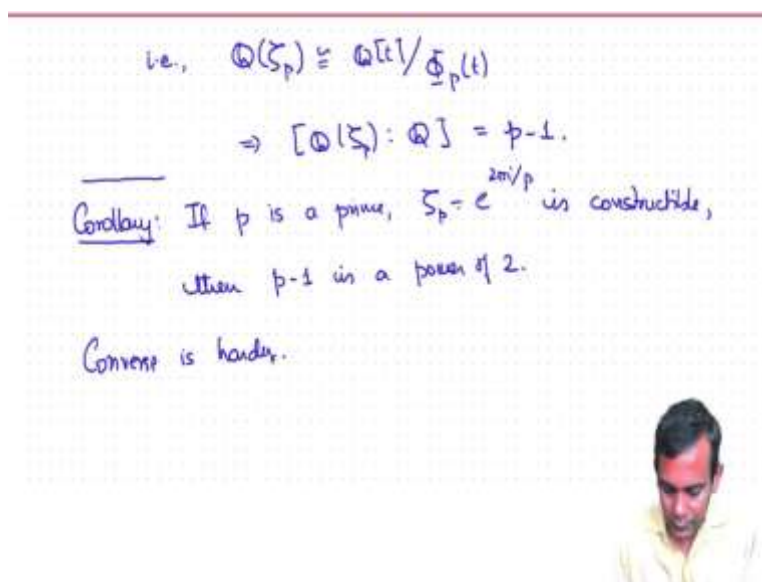 i.e., ℚ(ζ_p) ≅ ℚ[t]/Φ_p(t)
⇒ [ℚ(ζ_p) : ℚ] = p-1.
Corollary: If p is a prime, ζ_p = e^{2πi/p} is constructible,
then p-1 is a power of 2.
Converse is harder.